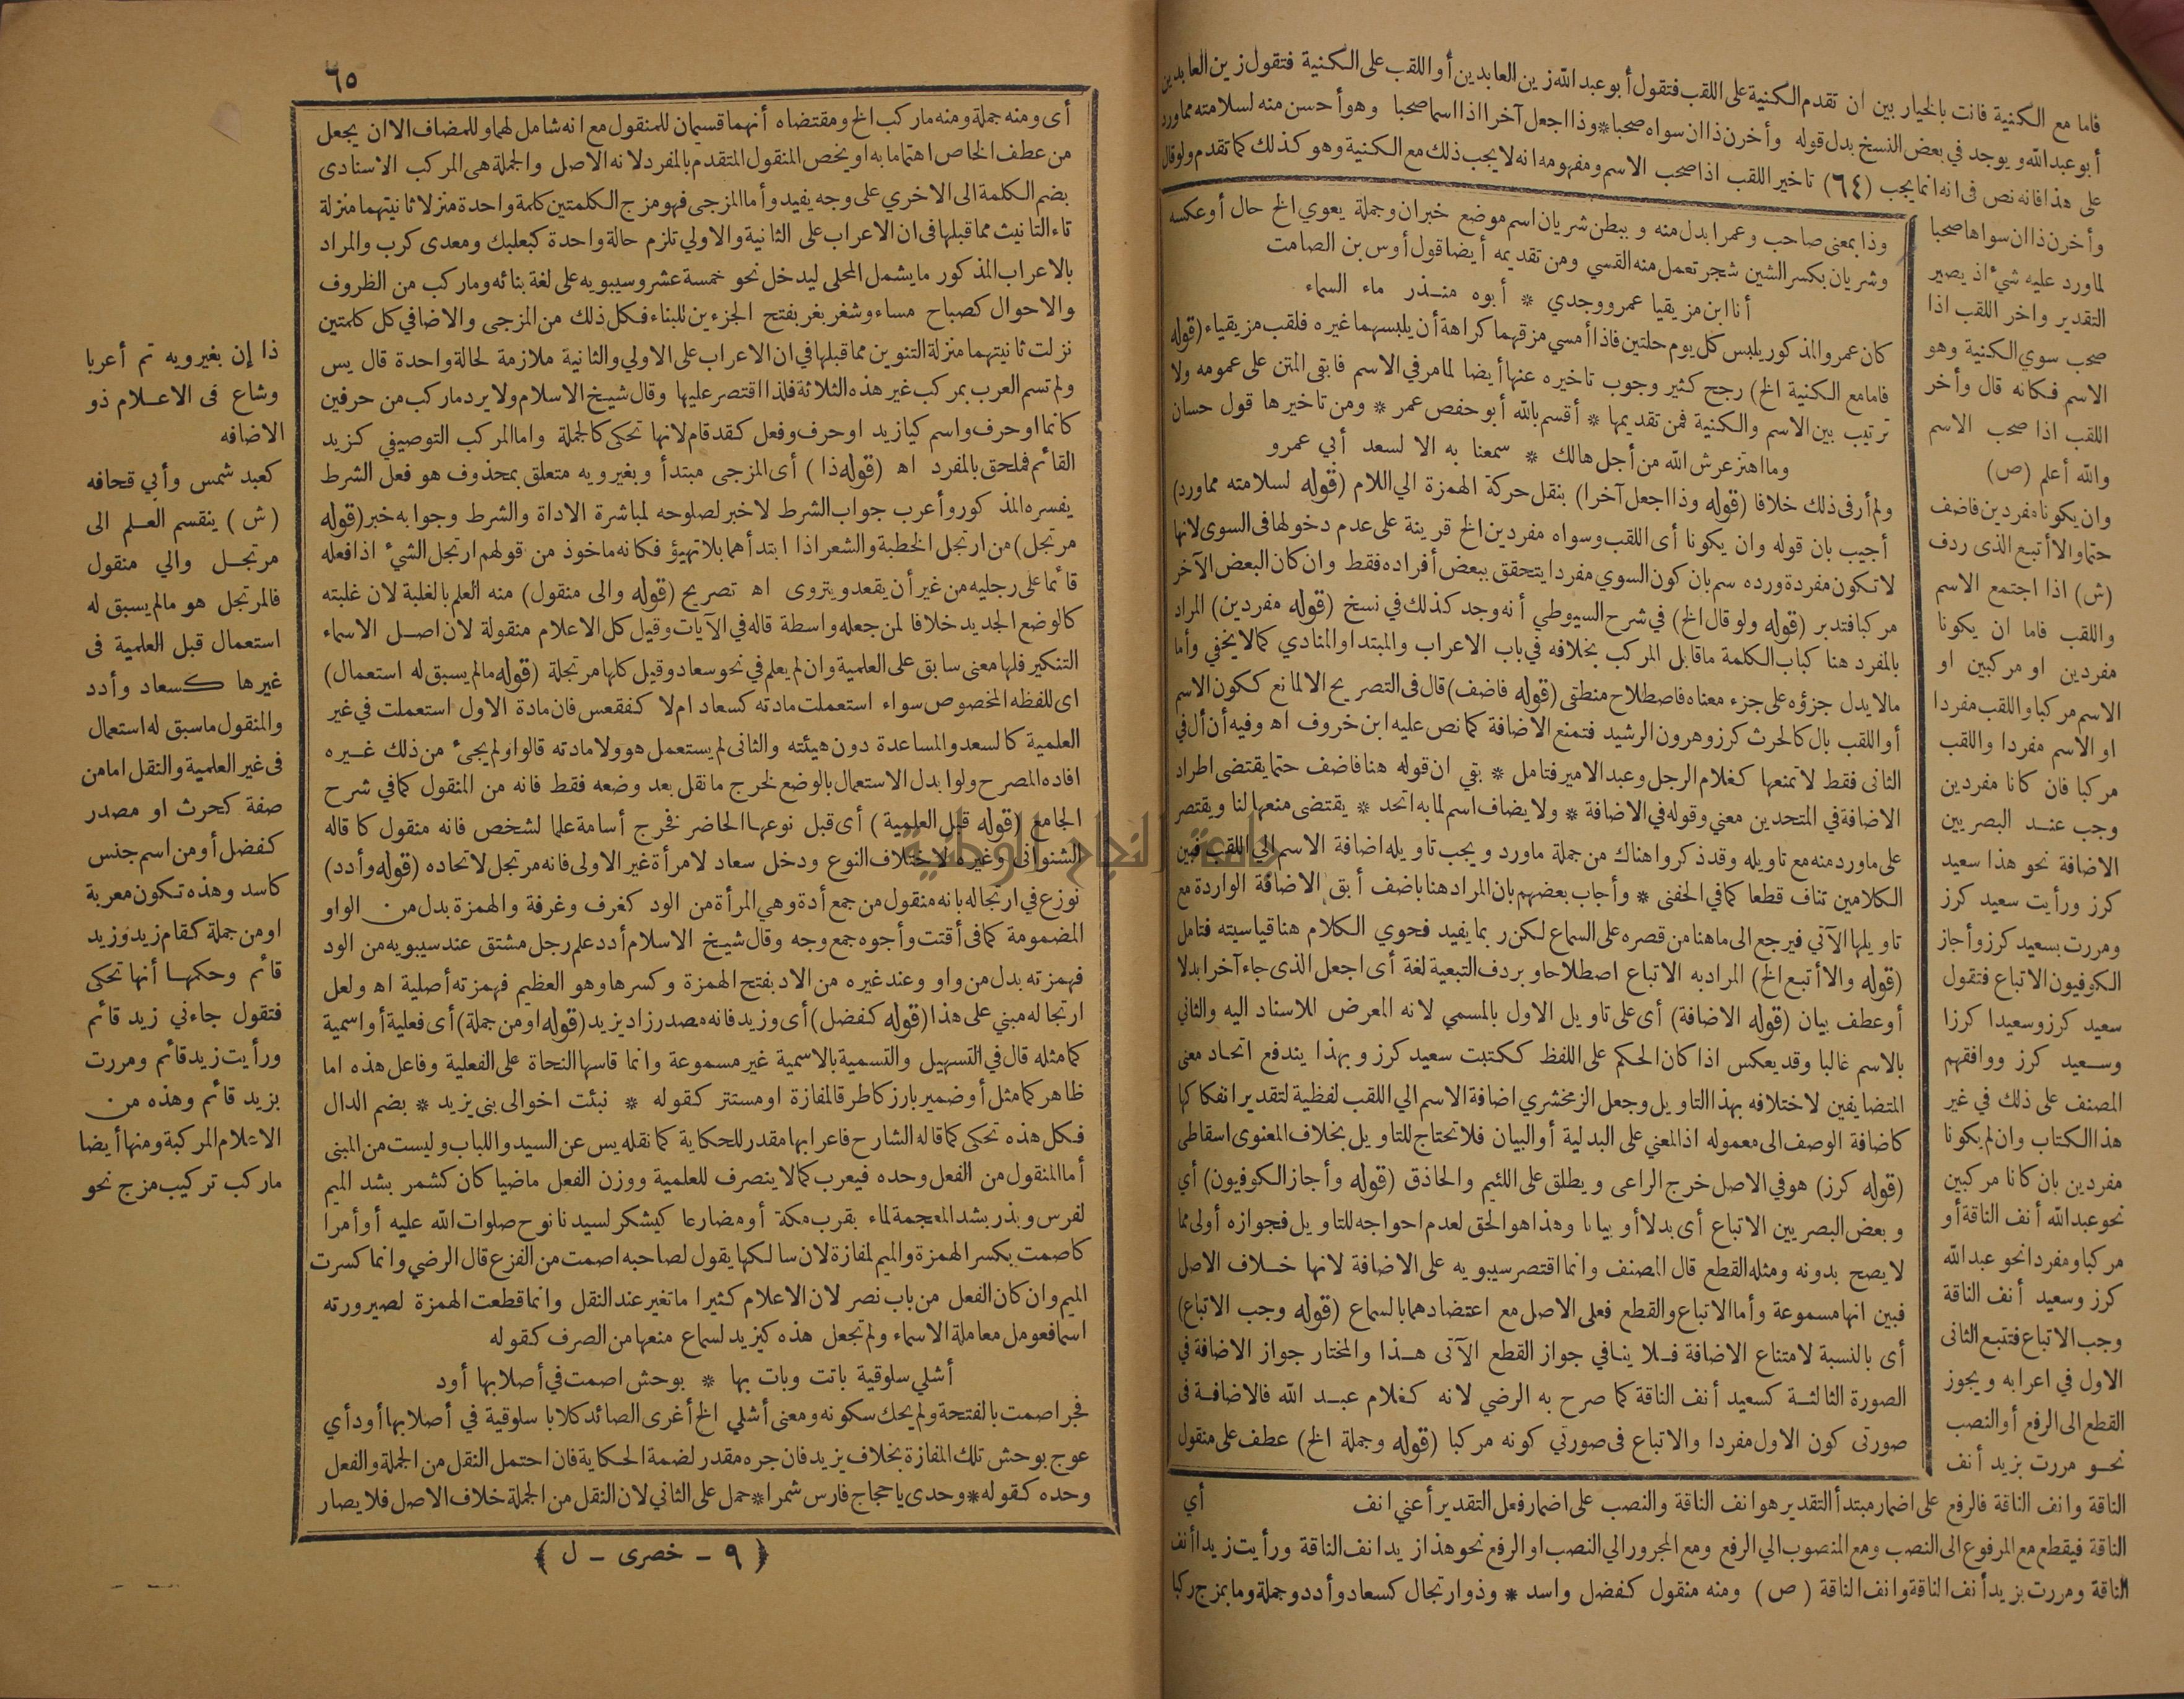 فاما مع الكنية فانت بالخيار بين ان تقدم الكنية على اللقب فتقول أبو عبد الله زين العابدين أو اللقب على الكنية فتقول زين العابدين
أبو عبد الله ويوجد في بعض النسخ بدل قوله وأخرن ذا ان سواه صحبا * وذا اجعل آخرا اذا اسما صحبا وهو أحسن منه لسلامته مما ورد
على هذا فانه نص فى انه انما يجب (٦٤) تاخير اللقب اذا صحب الاسم ومفهومه انه لا يجب ذلك مع الكنية وهو كذلك كما تقدم ولو قال
وأخرن ذا ان سواها صحبا
لما ورد عليه شيء اذ يصير
التقدير واخر اللقب اذا
صحب سوي الكنية وهو
الاسم فكانه قال وأخر
اللقب اذا صحب الاسم
والله أعلم (ص)
وان يكونا مفردين فاضف
حتما والا أتبع الذى ردف
(ش) اذا اجتمع الاسم
واللقب فاما ان يكونا
مفردين او مركبين او
الاسم مركبا واللقب مفردا
او الاسم مفردا واللقب
مركبا فان كانا مفردين
وجب عند البصريين
الاضافة نحو هذا سعيد
كرز ورأيت سعيد كرز
ومررت بسعيد كرز وأجاز
الكوفيون الاتباع فتقول
سعيد كرز وسعيدا كرزا
وسعيد كرز ووافقهم
المصنف على ذلك في غير
هذا الكتاب وان لم يكونا
مفردين بان كانا مركبين
نحو عبد الله أنف الناقة أو
مركبا ومفردا نحو عبد الله
كرز وسعيد أنف الناقة
وجب الاتباع فتتبع الثانى
الاول في اعرابه ويجوز
القطع الى الرفع أو النصب
نحو مررت بزيد أنف
وذا بمعنى صاحب وعمرا بدل منه وببطن شريان اسم موضع خبران وجملة يعوي الخ حال أو عكسه
وشريان بكسر الشين شجر تعمل منه القسي ومن تقديمه أيضا قول أوس بن الصامت
أنا ابن مزيقيا عمرو وجدي * أبوه منذر ماء السماء
كان عمرو المذكور يلبس كل يوم حلتين فاذا أمسي مزقهما كراهة أن يلبسهما غيره فلقب مزيقياء (قوله
فاما مع الكنية الخ) رجح كثير وجوب تاخيره عنها أيضا لما مر في الاسم فابقى المتن على عمومه ولا
ترتيب بين الاسم والكنية فمن تقديمها * أقسم بالله أبو حفص عمر * ومن تاخيرها قول حسان
وما اهتز عرش الله من أجل هالك * سمعنا به الا لسعد أبي عمرو
ولم أر فى ذلك خلافا (قوله وذا اجعل آخرا) بنقل حركة الهمزة الي اللام (قوله لسلامته مما ورد)
أجيب بان قوله وان يكونا أى اللقب وسواه مفردين الخ قرينة على عدم دخولها فى السوى لانها
لا تكون مفردة ورده سم بان كون السوي مفردا يتحقق ببعض أفراده فقط وان كان البعض الآخر
مركبا فتدبر (قوله ولو قال الخ) في شرح السيوطي أنه وجد كذلك في نسخ (قوله مفردين) المراد
بالمفرد هنا كباب الكلمة ما قابل المركب بخلافه في باب الاعراب والمبتدا والمنادي كما لا يخفي وأما
مالا يدل جزؤه على جزء معناه فاصطلاح منطقى (قوله فاضف) قال فى التصريح الا لمانع ككون الاسم
أو اللقب بال كالحرث كرز وهرون الرشيد فتمنع الاضافة كما نص عليه ابن خروف اه وفيه أن أل في
الثانى فقط لا تمنعها كغلام الرجل وعبد الامير فتامل * بقي ان قوله هنا فاضف حتما يقتضى اطراد
الاضافة في المتحدين معني وقوله في الاضافة * ولا يضاف اسم لما به اتحد * يقتضى منعها لنا ويقتصر
على ما ورد منه مع تاويله وقد ذكروا هناك من جملة ما ورد ويجب تاويله اضافة الاسم الي اللقب فبين
الكلامين تناف قطعا كما في الحفنى * وأجاب بعضهم بان المراد هنا باضف أبق الاضافة الواردة مع
تاويلها الآتي فيرجع الى ما هنا من قصره على السماع لكن ربما يفيد فحوي الكلام هنا قياسيته فتامل
(قوله والا أتبع الخ) المراد به الاتباع اصطلاحا وبردف التبعية لغة أى اجعل الذى جاء آخرا بدلا
أو عطف بيان (قوله الاضافة) أى على تاويل الاول بالمسمي لانه المعرض للاسناد اليه والثاني
بالاسم غالبا وقد يعكس اذا كان الحكم على اللفظ ككتبت سعيد كرز وبهذا يندفع اتحاد معنى
المتضايفين لاختلافه بهذا التاويل وجعل الزمخشري اضافة الاسم الي اللقب لفظية لتقدير انفكاكها
كاضافة الوصف الى معموله اذ المعني على البدلية أو البيان فلا تحتاج للتاويل بخلاف المعنوى اسقاطى
(قوله كرز) هو في الاصل خرج الراعى ويطلق على اللئيم والحاذق (قوله وأجاز الكوفيون) أي
وبعض البصريين الاتباع أى بدلا أو بيانا وهذا هو الحق لعدم احواجه للتاويل فجوازه أولى مما
لا يصح بدونه ومثله القطع قال المصنف وانما اقتصر سيبويه على الاضافة لانها خلاف الاصل
فبين انها مسموعة وأما الاتباع والقطع فعلى الاصل مع اعتضادهما بالسماع (قوله وجب الاتباع)
أى بالنسبة لامتناع الاضافة فلا ينافي جواز القطع الآتى هذا والمختار جواز الاضافة في
الصورة الثالثة كسعيد أنف الناقة كما صرح به الرضي لانه كغلام عبد الله فالاضافة فى
صورتى كون الاول مفردا والاتباع فى صورتي كونه مركبا (قوله وجملة الخ) عطف على منقول
الناقة وانف الناقة فالرفع على اضمار مبتدأ التقدير هو انف الناقة والنصب على اضمار فعل التقدير أعني انف أي
الناقة فيقطع مع المرفوع الى النصب ومع المنصوب الي الرفع ومع المجرور الي النصب او الرفع نحو هذا زيد انف الناقة ورأيت زيدا أنف
الناقة ومررت بزيد أنف الناقة وانف الناقة (ص) ومنه منقول كفضل واسد * وذو ارتجال كسعاد وأدد وجملة وما بمزج ركبا
٦٥
أى ومنه جملة ومنه ما ركب الخ ومقتضاه أنهما قسيمان للمنقول مع انه شامل لهما وللمضاف الا ان يجعل
من عطف الخاص اهتماما به او يخص المنقول المتقدم بالمفرد لانه الاصل والجملة هى المركب الاسنادى
بضم الكلمة الى الاخري على وجه يفيد وأما المزجى فهو مزج الكلمتين كلمة واحدة منزلا ثانيتهما منزلة
تاء التانيث مما قبلها فى ان الاعراب على الثانية والاولي تلزم حالة واحدة كبعلبك ومعدى كرب والمراد
بالاعراب المذكور ما يشمل المحلى ليدخل نحو خمسة عشر وسيبويه على لغة بنائه وما ركب من الظروف
والاحوال كصباح مساء وشغر بغر بفتح الجزءين للبناء فكل ذلك من المزجى والاضافي كل كلمتين
نزلت ثانيتهما منزلة التنوين مما قبلها في ان الاعراب على الاولي والثانية ملازمة لحالة واحدة قال يس
ولم تسم العرب بمركب غير هذه الثلاثة فلذا اقتصر عليها وقال شيخ الاسلام ولا يرد ما ركب من حرفين
كانما او حرف واسم كيا زيد او حرف وفعل كقد قام لانها تحكى كالجملة واما المركب التوصيفي كزيد
القائم فملحق بالمفرد اه (قوله ذا) أى المزجى مبتدأ وبغير ويه متعلق بمحذوف هو فعل الشرط
يفسره المذكور وأعرب جواب الشرط لا خبر لصلوحه لمباشرة الاداة والشرط وجوابه خبر (قوله
مرتجل) من ارتجل الخطبة والشعر اذا ابتدأهما بلا تهيؤ فكانه ماخوذ من قولهم ارتجل الشيء اذا فعله
قائما على رجليه من غير أن يقعد ويتروى اه تصريح (قوله والى منقول) منه العلم بالغلبة لان غلبته
كالوضع الجديد خلافا لمن جعله واسطة قاله في الآيات وقيل كل الاعلام منقولة لان اصل الاسماء
التنكير فلها معنى سابق على العلمية وان لم يعلم في نحو سعاد وقيل كلها مرتجلة (قوله مالم يسبق له استعمال)
اى للفظه المخصوص سواء استعملت مادته كسعاد ام لا كفقعس فان مادة الاول استعملت في غير
العلمية كالسعد والمساعدة دون هيئته والثانى لم يستعمل هو ولا مادته قالوا ولم يجىء من ذلك غيره
افاده المصرح ولو ابدل الاستعمال بالوضع لخرج ما نقل بعد وضعه فقط فانه من المنقول كما في شرح
الجامع (قوله قبل العلمية) أى قبل نوعها الحاضر فخرج أسامة علما لشخص فانه منقول كا قاله
الشنوانى وغيره لاختلاف النوع ودخل سعاد لامرأة غير الاولى فانه مرتجل لاتحاده (قوله وأدد)
نوزع في ارتجاله بانه منقول من جمع أدة وهي المرأة من الود كغرف وغرفة والهمزة بدل من الواو
المضمومة كما فى أقتت وأجوه جمع وجه وقال شيخ الاسلام أدد علم رجل مشتق عند سيبويه من الود
فهمزته بدل من واو وعند غيره من الاد بفتح الهمزة وكسرها وهو العظيم فهمزته أصلية اه ولعل
ارتجاله مبني على هذا (قوله كفضل) أى وزيد فانه مصدر زاد يزيد (قوله او من جملة) أى فعلية أو اسمية
كما مثله قال في التسهيل والتسمية بالاسمية غير مسموعة وانما قاسها النحاة على الفعلية وفاعل هذه اما
ظاهر كما مثل أو ضمير بارز كاطرقا لمفازة او مستتر كقوله * نبئت اخوالى بنى يزيد * بضم الدال
فكل هذه تحكى كما قاله الشارح فاعرابها مقدر للحكاية كما نقله يس عن السيد واللباب وليست من المبنى
أما المنقول من الفعل وحده فيعرب كما لا ينصرف للعلمية ووزن الفعل ماضيا كان كشمر بشد الميم
لفرس وبذر بشد المعجمة لماء بقرب مكة أو مضارعا كيشكر لسيدنا نوح صلوات الله عليه أو أمرا
كاصمت بكسر الهمزة والميم لمفازة لان سالكها يقول لصاحبه اصمت من الفزع قال الرضي وانما كسرت
الميم وان كان الفعل من باب نصر لان الاعلام كثيرا ما تغير عند النقل وانما قطعت الهمزة لصيرورته
اسما فعومل معاملة الاسماء ولم تجعل هذه كيزيد لسماع منعها من الصرف كقوله
أشلي سلوقية باتت وبات بها * بوحش اصمت في أصلابها أود
فجر اصمت بالفتحة ولم يحك سكونه ومعنى أشلي الخ أغرى الصائد كلابا سلوقية في أصلابها أود أي
عوج بوحش تلك المفازة بخلاف يزيد فان جره مقدر لضمة الحكاية فان احتمل النقل من الجملة والفعل
وحده كقوله * وحدى يا حجاج فارس شمرا * حمل على الثاني لان النقل من الجملة خلاف الاصل فلا يصار
ذا إن بغير ويه تم أعربا
وشاع فى الاعلام ذو
الاضافه
كعبد شمس وأبي قحافه
(ش) ينقسم العلم الى
مرتجل والي منقول
فالمرتجل هو مالم يسبق له
استعمال قبل العلمية فى
غيرها كسعاد وأدد
والمنقول ما سبق له استعمال
فى غير العلمية والنقل اما من
صفة كحرث او مصدر
كفضل أو من اسم جنس
كاسد وهذه تكون معربة
او من جملة كقام زيد وزيد
قائم وحكمها أنها تحكى
فتقول جاءني زيد قائم
ورأيت زيد قائم ومررت
بزيد قائم وهذه من
الاعلام المركبة ومنها أيضا
ما ركب تركيب مزج نحو
(٩ - خضرى - ل)
جامعة النجاح الوطنية